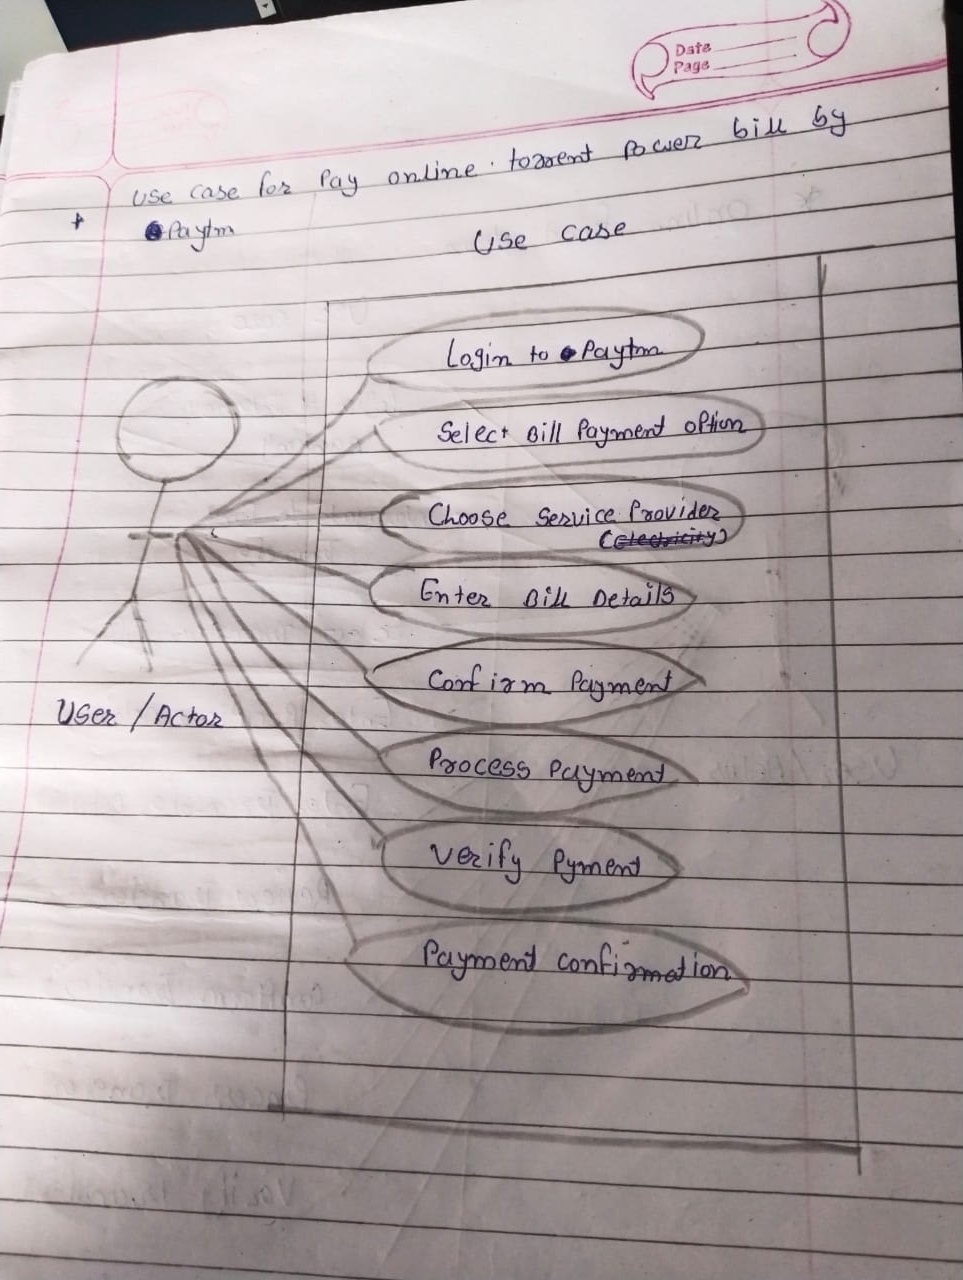 Date
Page
Use case for Pay online. torrent Power bill by
Paytm
Use case
Login to Paytm
Select Bill Payment option
Choose Service Provider
(Electricity)
Enter Bill Details
Confirm Payment
User / Actor
Process Payment
Verify Pyment
Payment confirmation